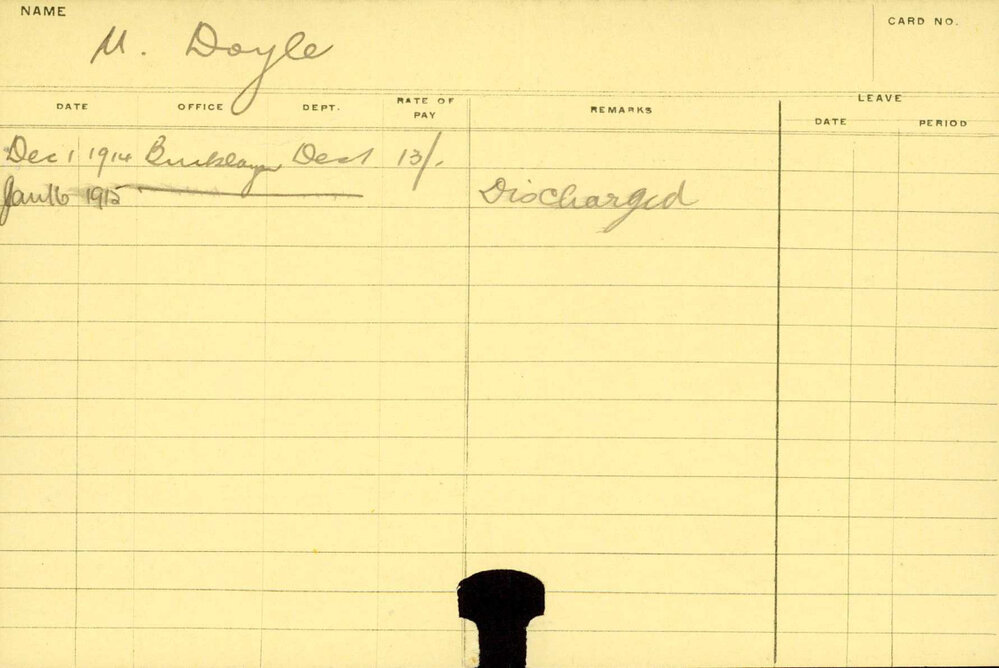 NAME
M. Doyle
CARD NO.
DATE OFFICE DEPT. RATE OF PAY REMARKS LEAVE
DATE PERIOD
Dec 1 1914 13/.
Jan 16 1915 Discharged